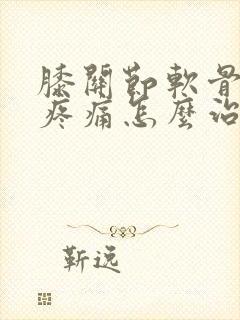 膝關節軟骨
疼痛怎麼治
靳逸